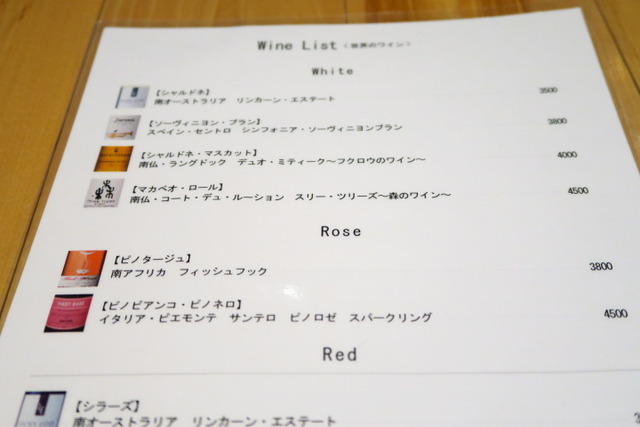 Wine List（世界のワイン）
White
【シャルドネ】
南オーストラリア　リンカーン・エステート　3500
【ソーヴィニヨン・ブラン】
スペイン・セントロ　シンフォニア・ソーヴィニヨンブラン　3800
【シャルドネ・マスカット】
南仏・ラングドック　デュオ・ミティーク～フクロウのワイン～　4000
【マカベオ・ロール】
南仏・コート・デュ・ルーション　スリー・ツリーズ～森のワイン～　4500
Rose
【ピノタージュ】
南アフリカ　フィッシュフック　3800
【ピノビアンコ・ピノネロ】
イタリア・ピエモンテ　サンテロ　ピノロゼ　スパークリング　4500
Red
【シラーズ】
南オーストラリア　リンカーン・エステート